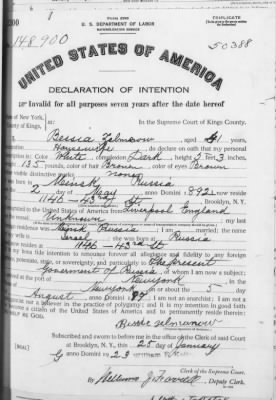 Form 2203
TRIPLICATE
U. S. DEPARTMENT OF LABOR
NATURALIZATION SERVICE
No. 148900
50388
UNITED STATES OF AMERICA
DECLARATION OF INTENTION
Invalid for all purposes seven years after the date hereof
State of New York,
County of Kings,
ss:
In the Supreme Court of Kings County.
Bessie Zelmanow, aged 41 years,
occupation Housewife, do declare on oath that my personal
description is: Color White, complexion Dark, height 5 feet 3 inches,
weight 135 pounds, color of hair Brown, color of eyes Brown
other visible distinctive marks none
Minsk Russia
on the 2 day of May, anno Domini 1892, now reside
at 1146-43rd St, Brooklyn, N. Y.
I emigrated to the United States of America from Liverpool England
on the vessel unknown, my last
foreign residence was Minsk Russia; I am married; the name
of my husband is Israel, she was born at Russia
and now resides at 1146-43rd St
It is my bona fide intention to renounce forever all allegiance and fidelity to any foreign
prince, potentate, state, or sovereignty, and particularly to The present
Government of Russia, of whom I am now a subject;
I arrived at the port of New York, in the
State of New York, on or about the 5 day
of August, anno Domini; I am not an anarchist; I am not a
polygamist nor a believer in the practice of polygamy; and it is my intention in good faith
to become a citizen of the United States of America and to permanently reside therein:
SO HELP ME GOD.
Bessie Zelmanow
Subscribed and sworn to before me in the office of the Clerk of said Court
[SEAL]
at Brooklyn, N. Y., this 25 day of January
anno Domini 1923
Clerk of the Supreme Court.
By William J. Farrell, Deputy Clerk.